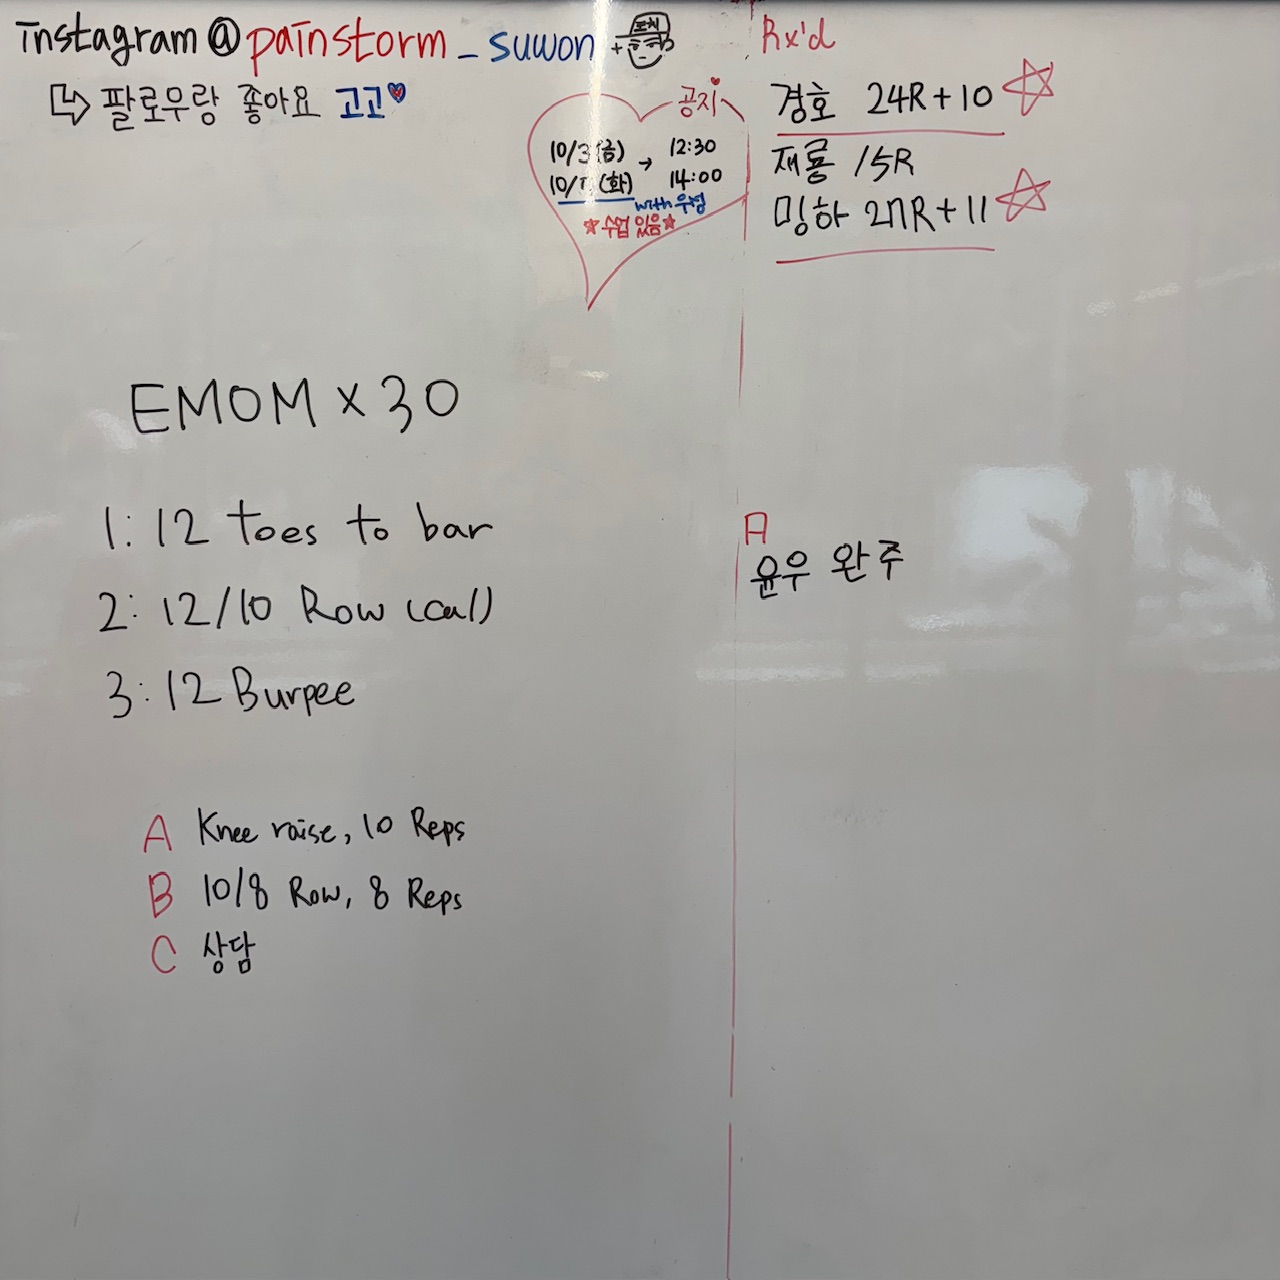 instagram@painstorm_suwon
팔로우랑 좋아요 고고
코치
공지
10/3(금) → 12:30
10/7(화) 14:00
with 우성
수업 있음
Rx'd
경호 24R+10
재룡 15R
밍하 27R+11
EMOM x 30
1: 12 toes to bar
2: 12/10 Row (cal)
3: 12 Burpee
A Knee raise, 10 Reps
B 10/8 Row, 8 Reps
C 상담
A
윤우 완주